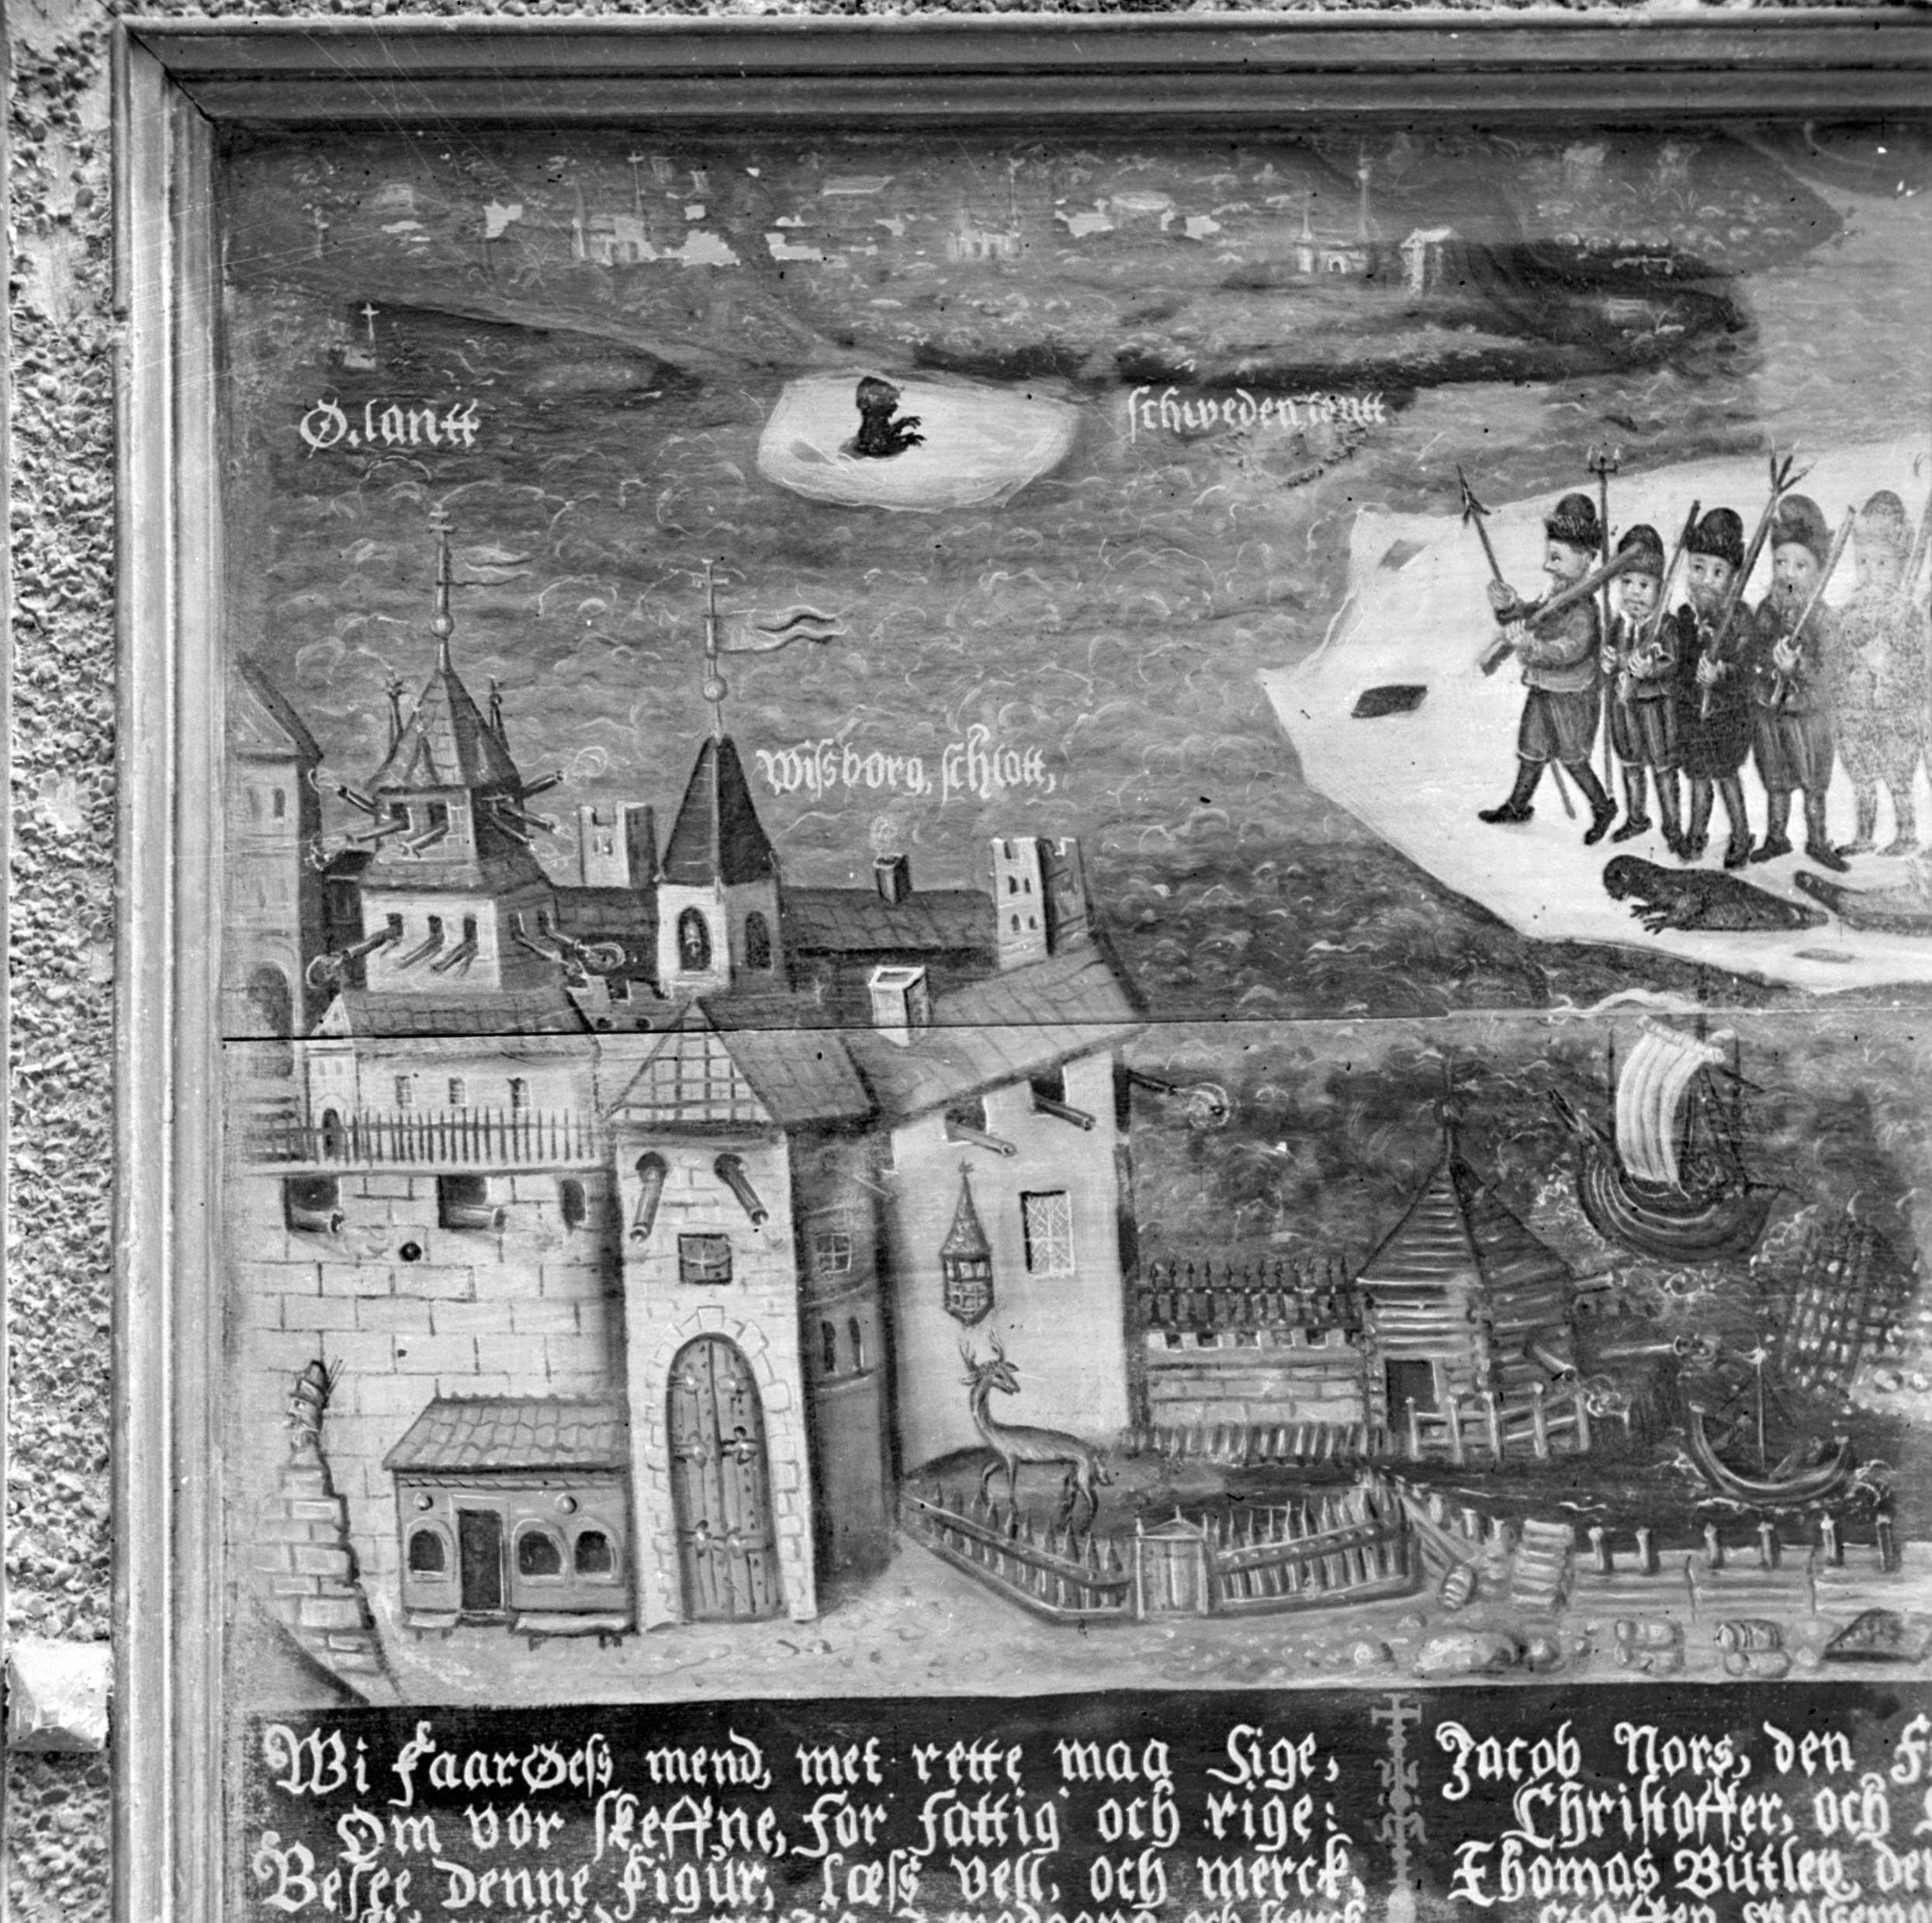 Ø.lantt
schweden, lantt
Wissborg, schlott,
Wi faarØess mend, met rette maa Sige,
Om vor skeffne, for fattig och rige:
Besee Denne figur, læss vell, och merck,
och sterck
Jacob Nors, den
Christoffer, och
Thomas Butler, den